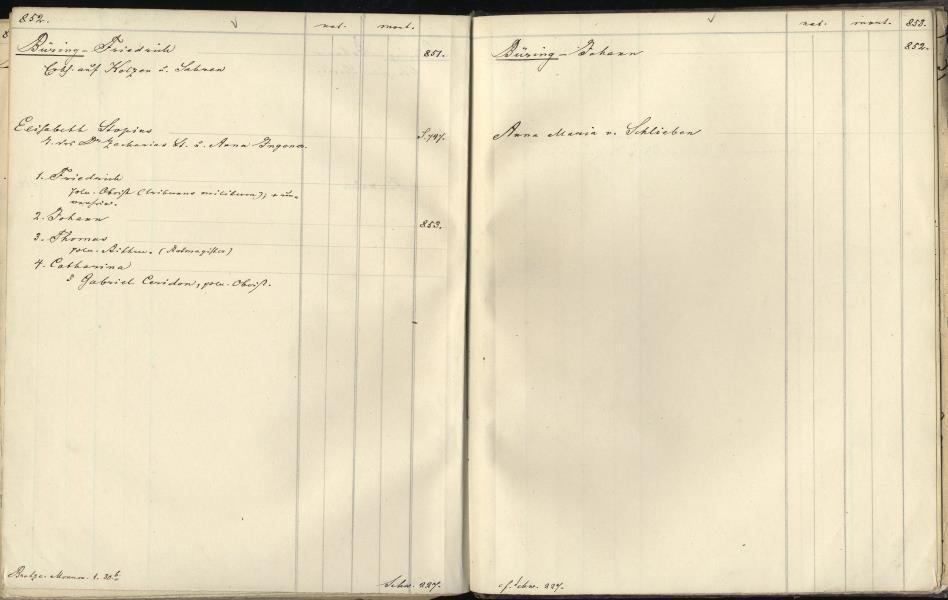 852. nat. mort.
Büring - Friedrich 851.
Erbh. auf Holzen u. Sahren
Elisabeth Stopius S. 747.
T. des Dr Zacharias St. u. Anna Ingena.
1. Friedrich
poln. Obrist (tribunus militum), + un-
2. Johann 853.
3. Thomas
poln. Rittm. (Rotmagister)
4. Catharina
Gabriel Ceridon, poln. Obrist.
Schw. 227.
nat. mort. 853.
Büring - Johann 852.
Anna Maria v. Schlieben
cf. Schw. 227.